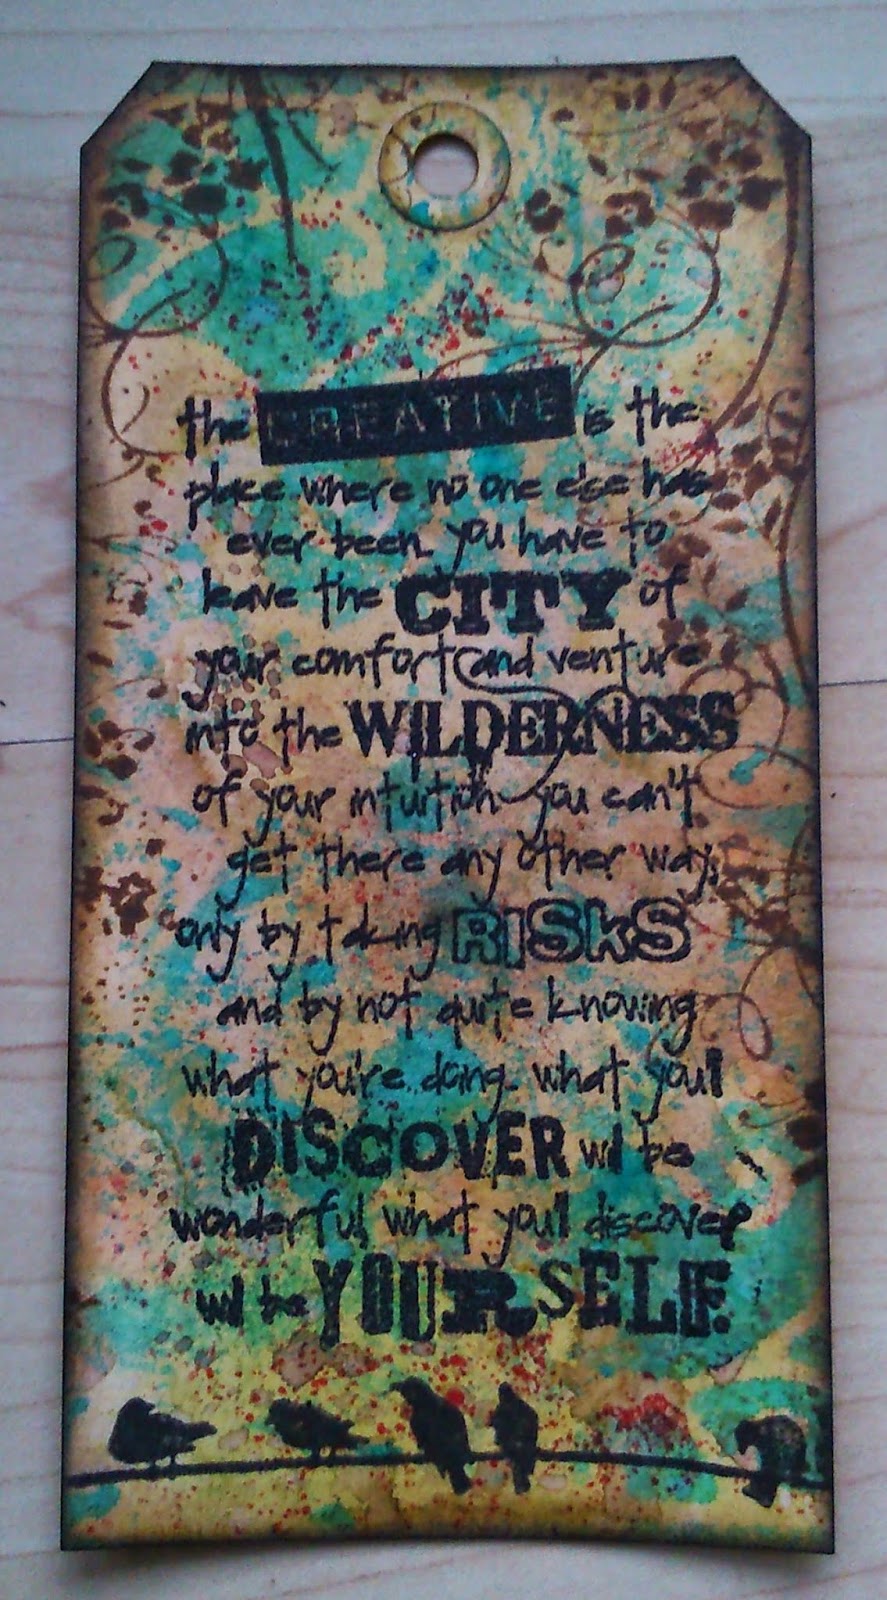 the CREATIVE is the
place where no one else has
ever been. you have to
leave the CITY of
your comfort and venture
into the WILDERNESS
of your intuition you can't
get there any other way,
only by taking RISKS
and by not quite knowing
what you're doing. what you'll
DISCOVER will be
wonderful, what you'll discover
will be YOURSELF.